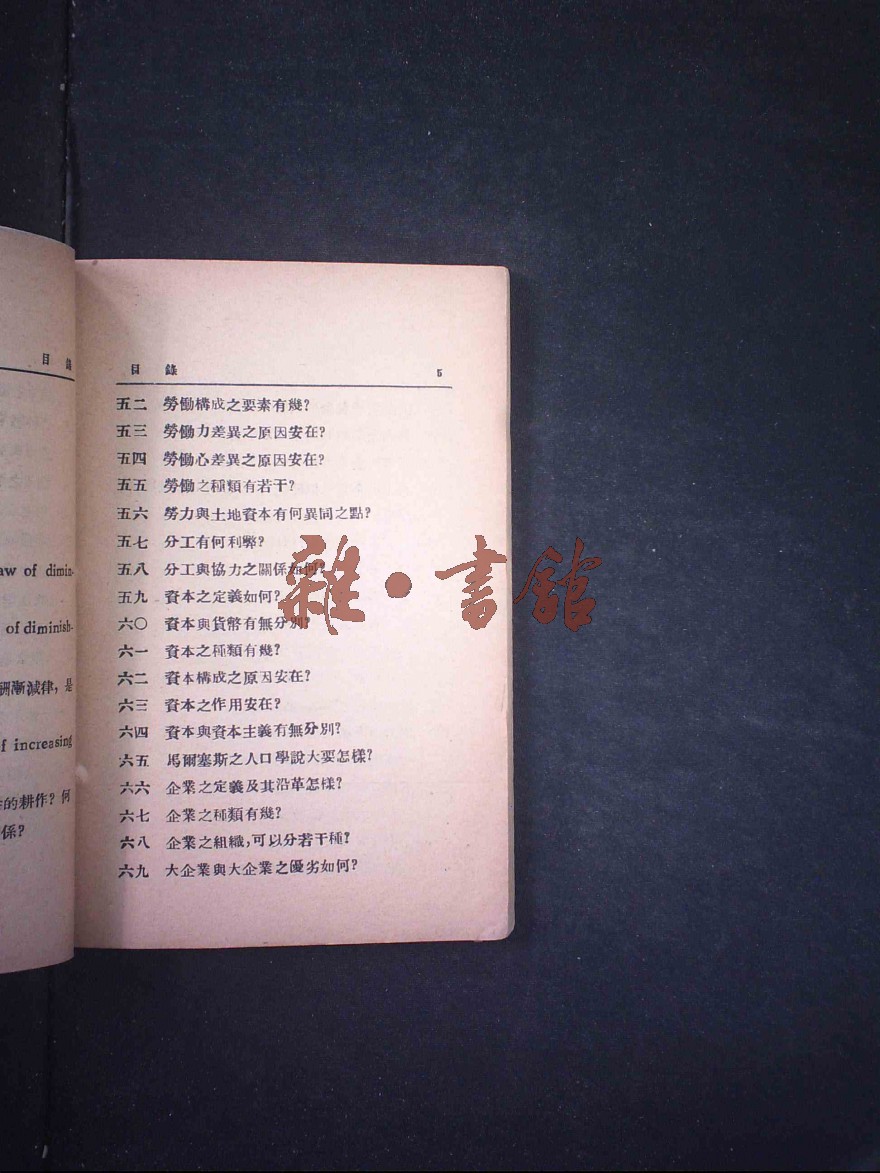 目 錄
aw of dimin-
of diminish-
酬漸減律，是
f increasing
的耕作？何
係？
目 錄 5
五二 勞働構成之要素有幾？
五三 勞働力差異之原因安在？
五四 勞働心差異之原因安在？
五五 勞働之種類有若干？
五六 勞力與土地資本有何異同之點？
五七 分工有何利弊？
五八 分工與協力之關係如何？
五九 資本之定義如何？
六〇 資本與貨幣有無分別？
六一 資本之種類有幾？
六二 資本構成之原因安在？
六三 資本之作用安在？
六四 資本與資本主義有無分別？
六五 馬爾塞斯之人口學說大要怎樣？
六六 企業之定義及其沿革怎樣？
六七 企業之種類有幾？
六八 企業之組織，可以分若干種？
六九 大企業與大企業之優劣如何？
雜·書館